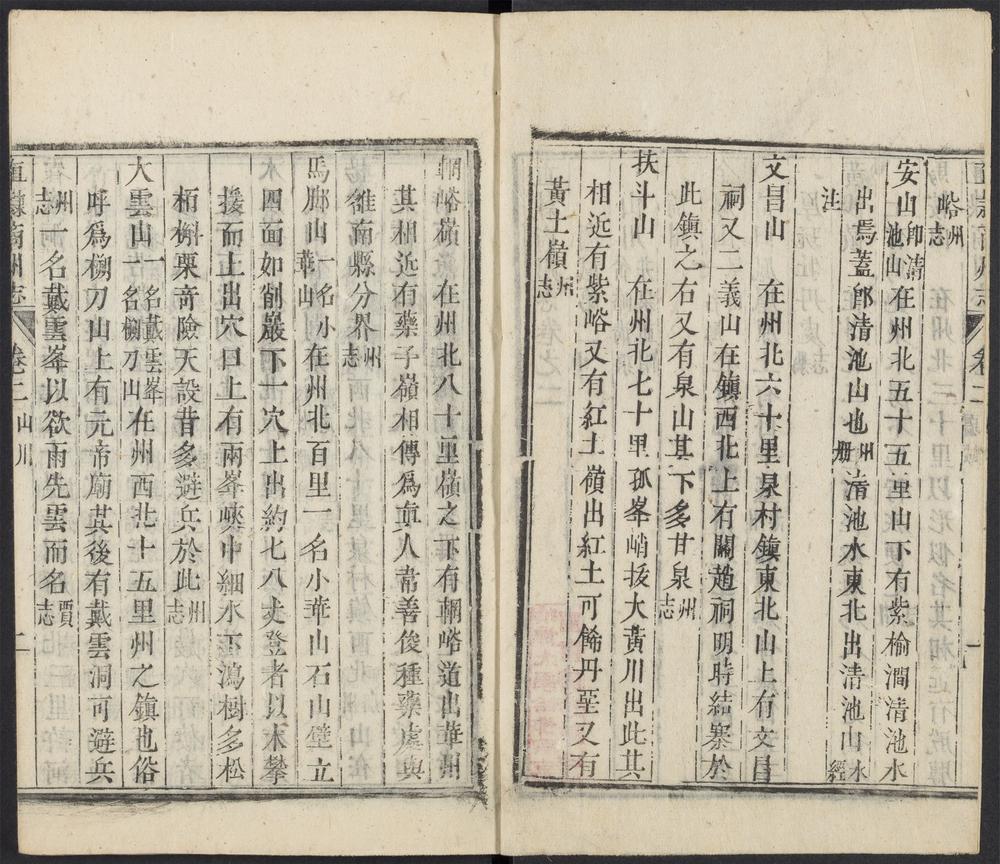 峪州志
安山卽清池山在州北五十五里山下有紫榆澗清池水
出焉蓋卽清池山也州册清池水東北出清池山水經
注
文昌山　在州北六十里泉村鎮東北山上有文昌
祠又二義山在鎮西北上有關趙祠明時結寨於
此鎮之右又有泉山其下多甘泉州志
扶斗山　在州北七十里孤峯峭拔大黃川出此其
相近有紫峪又有紅土嶺出紅土可餙丹堊又有
黃土嶺州志
輞峪嶺在州北八十里嶺之下有輞峪道出華州
其相近有藥子嶺相傳爲眞人常善俊種藥處與
雒南縣分界州志
馬郎山一名小華山在州北百里一名小華山石山壁立
四面如削巖下一穴上出約七八丈登者以木攀
援而上出穴口上有兩峯峽中細水下瀉樹多松
栢槲栗奇險天設昔多避兵於此州志
大雲山一名戴雲峯一名槲刀山在州西北十五里州之鎮也俗
呼爲槲刀山上有元帝廟其後有戴雲洞可避兵
州志一名戴雲峯以欲雨先雲而名賈志
直隸商州志
卷二山川
二